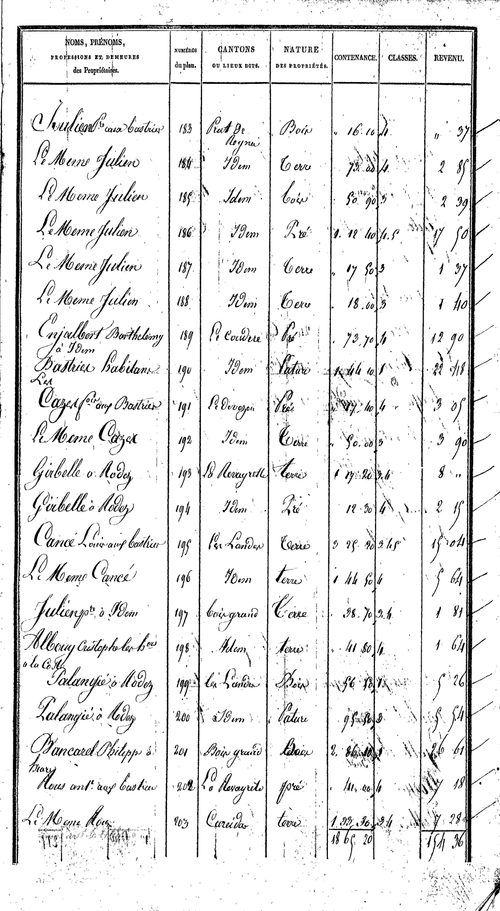 NOMS, PRÉNOMS, PROFESSIONS ET DEMEURES des Propriétaires. NUMÉROS du plan. CANTONS OU LIEUX DITS. NATURE DES PROPRIÉTÉS. CONTENANCE. CLASSES. REVENU.
Julien pte aux Bastries 183 Puet De Reyna Bois " 16 10 4 " 37
Le Meme Julien 184 Idem Terre " 73 00 4 2 85
Le Meme Julien 185 Idem Bois " 50 90 3 2 39
Le Meme Julien 186 Idem Pré 1 12 40 4.5 17 50
Le Meme Julien 187 Idem Terre " 17 50 3 1 37
Le Meme Julien 188 Idem Terre " 18 00 3 1 40
Enjalbert Barthelemy à Idem 189 Le Couderc Pré " 73 70 4 12 90
Bastries habitans Les 190 Idem Pature 1 44 10 1 22 48
Cazes aux Bastries 191 Le Devezou Prés 17 40 4 3 05
Le Meme Cazes 192 Idem Terre " 50 00 3 3 90
Girbelle à Rodez 193 La Revayrette terre 1 17 20 3.4 8 "
Girbelle à Rodez 194 Idem Pré " 12 30 4 2 15
Cancé Louis aux Bastries 195 Les Landes Terre 3 25 30 3 4 5 15 04
Le Meme Cancé 196 Idem terre 1 44 50 4 5 64
Julien pte à Idem 197 Bois grand Terre " 38 70 3.4 1 81
Albouy Cristophe les hers à la 198 Idem terre " 41 80 4 1 64
Palangié à Rodez 199 les Landes Bois " 56 50 1 5 26
Palangié à Rodez 200 Idem Pature 95 50 3 5 54
Bancarel Philipp à 201 Bois grand Bois 2 86 10 1 26 61
Rous ant. aux Bastries 202 La Revayrete pré " 41 00 4 7 18
Le Meme Rous 203 terre 1 33 30 3.4 7 28
18 65 20 154 36